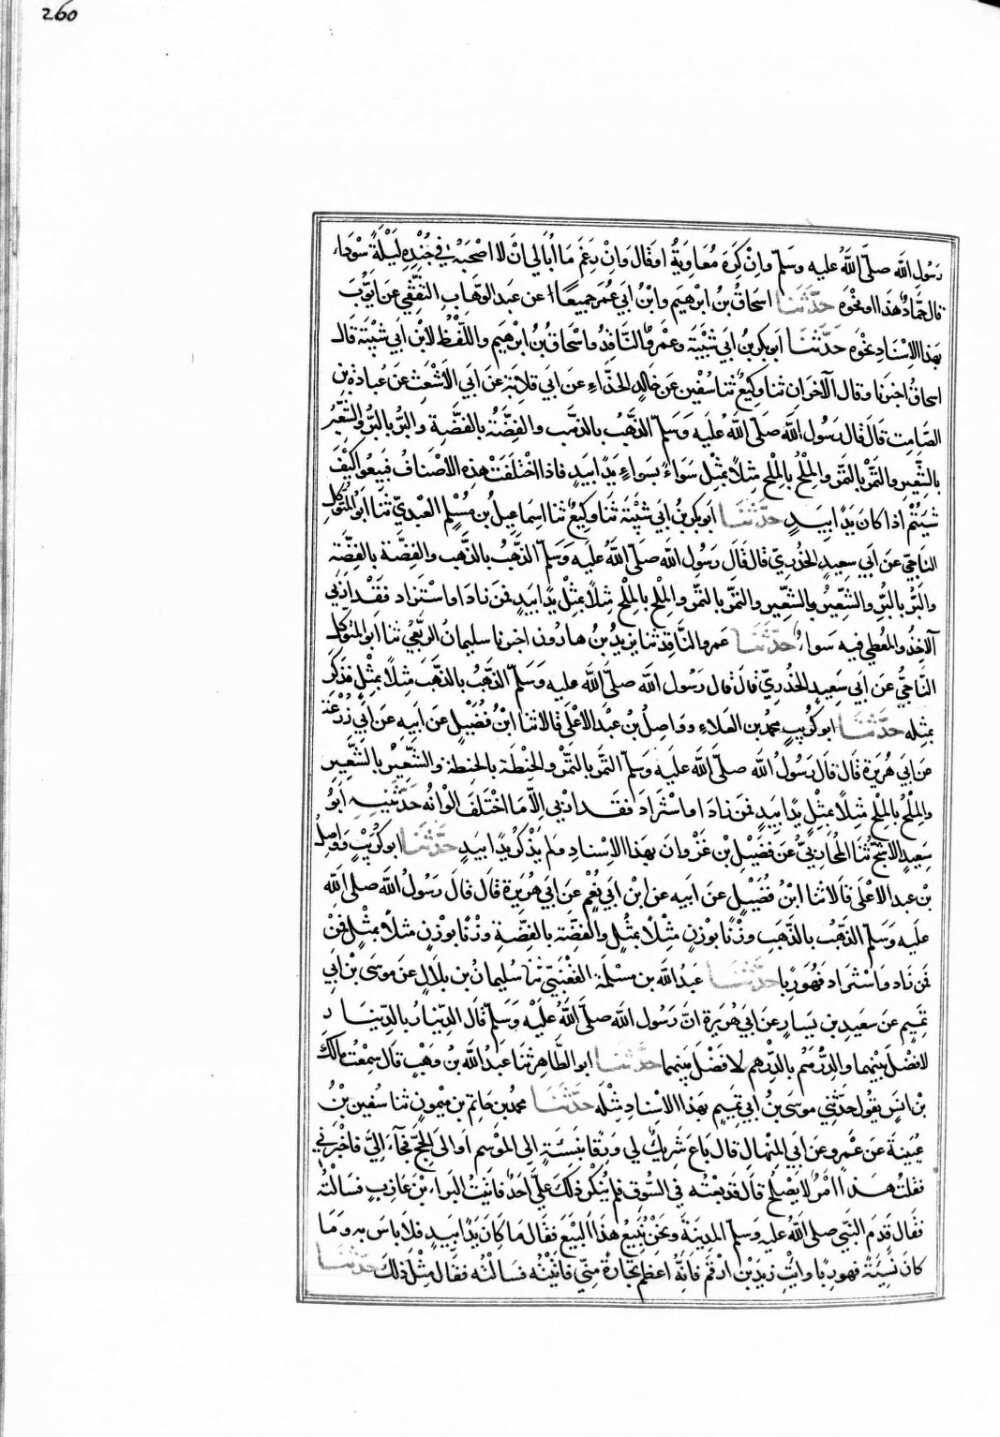 260
رسول الله صلى الله عليه وسلم وان كره معاوية او قال وان رغم ما ابالي ان لا اصحبه في جنده ليلة سوداء
قال حماد هذا او نحوه حدثنا اسحاق بن ابرهيم وابن ابي عمر جميعا عن عبد الوهاب الثقفي عن ايوب
بهذا الاسناد نحوه حدثنا ابو بكر بن ابي شيبة وعمرو الناقد واسحاق بن ابرهيم واللفظ لابن ابي شيبة قال
اسحاق اخبرنا وقال الآخران ثنا وكيع ثنا سفين عن خالد الحذاء عن ابي قلابة عن ابي الاشعث عن عبادة بن
الصامت قال قال رسول الله صلى الله عليه وسلم الذهب بالذهب والفضة بالفضة والبر بالبر والشعير
بالشعير والتمر بالتمر والملح بالملح مثلا بمثل سواء بسواء يدا بيد فاذا اختلفت هذه الاصناف فبيعوا كيف
شيتم اذا كان يدا بيد حدثنا ابو بكر بن ابي شيبة ثنا وكيع ثنا اسماعيل بن مسلم العبدي ثنا ابو المتوكل
الناجي عن ابي سعيد الخدري قال قال رسول الله صلى الله عليه وسلم الذهب بالذهب والفضة بالفضة
والبر بالبر والشعير بالشعير والتمر بالتمر والملح بالملح مثلا بمثل يدا بيد فمن زاد او استزاد فقد اربى
الآخذ والمعطي فيه سواء حدثنا عمرو الناقد ثنا يزيد بن هارون اخبرنا سليمان الربعي ثنا ابو المتوكل
الناجي عن ابي سعيد الخدري قال قال رسول الله صلى الله عليه وسلم الذهب بالذهب مثلا بمثل فذكر
بمثله حدثنا ابو كريب محمد بن العلاء وواصل بن عبد الاعلى قالا ثنا ابن فضيل عن ابيه عن ابي زرعة
عن ابي هريرة قال قال رسول الله صلى الله عليه وسلم التمر بالتمر والحنطة بالحنطة والشعير بالشعير
والملح بالملح مثلا بمثل يدا بيد فمن زاد او استزاد فقد اربى الا ما اختلف الوانه حدثنيه ابو
سعيد الاشج ثنا المحاربي عن فضيل بن غزوان بهذا الاسناد ولم يذكر يدا بيد حدثنا ابو كريب وواصل
بن عبد الاعلى قالا ثنا ابن فضيل عن ابيه عن ابن ابي نعم عن ابي هريرة قال قال رسول الله صلى الله
عليه وسلم الذهب بالذهب وزنا بوزن مثلا بمثل والفضة بالفضة وزنا بوزن مثلا بمثل فمن
فمن زاد واستزاد فهو ربا حدثنا عبد الله بن مسلمة القعنبي ثنا سليمان بن بلال عن موسى بن ابي
تميم عن سعيد بن يسار عن ابي هريرة ان رسول الله صلى الله عليه وسلم قال الدينار بالدينار
لا فضل بينهما والدرهم بالدرهم لا فضل بينهما حدثنا ابو الطاهر ثنا عبد الله بن وهب قال سمعت مالك
بن انس يقول حدثني موسى بن ابي تميم بهذا الاسناد مثله حدثنا محمد بن حاتم بن ميمون ثنا سفين بن
عيينة عن عمرو عن ابي المنهال قال باع شريك لي ورقا نسيئة الى الموسم او الى الحج فجاء الي فاخبرني
فقلت هذا امر لا يصلح قال قد بعته في السوق فلم ينكر ذلك علي احد فاتيت البراء بن عازب فسالته
فقال قدم النبي صلى الله عليه وسلم المدينة ونحن نبيع هذا البيع فقال ما كان يدا بيد فلا باس به وما
كان نسيئة فهو ربا وايت زيد بن ارقم فانه اعظم تجارة مني فاتيته فسالته فقال مثل ذلك حدثنا